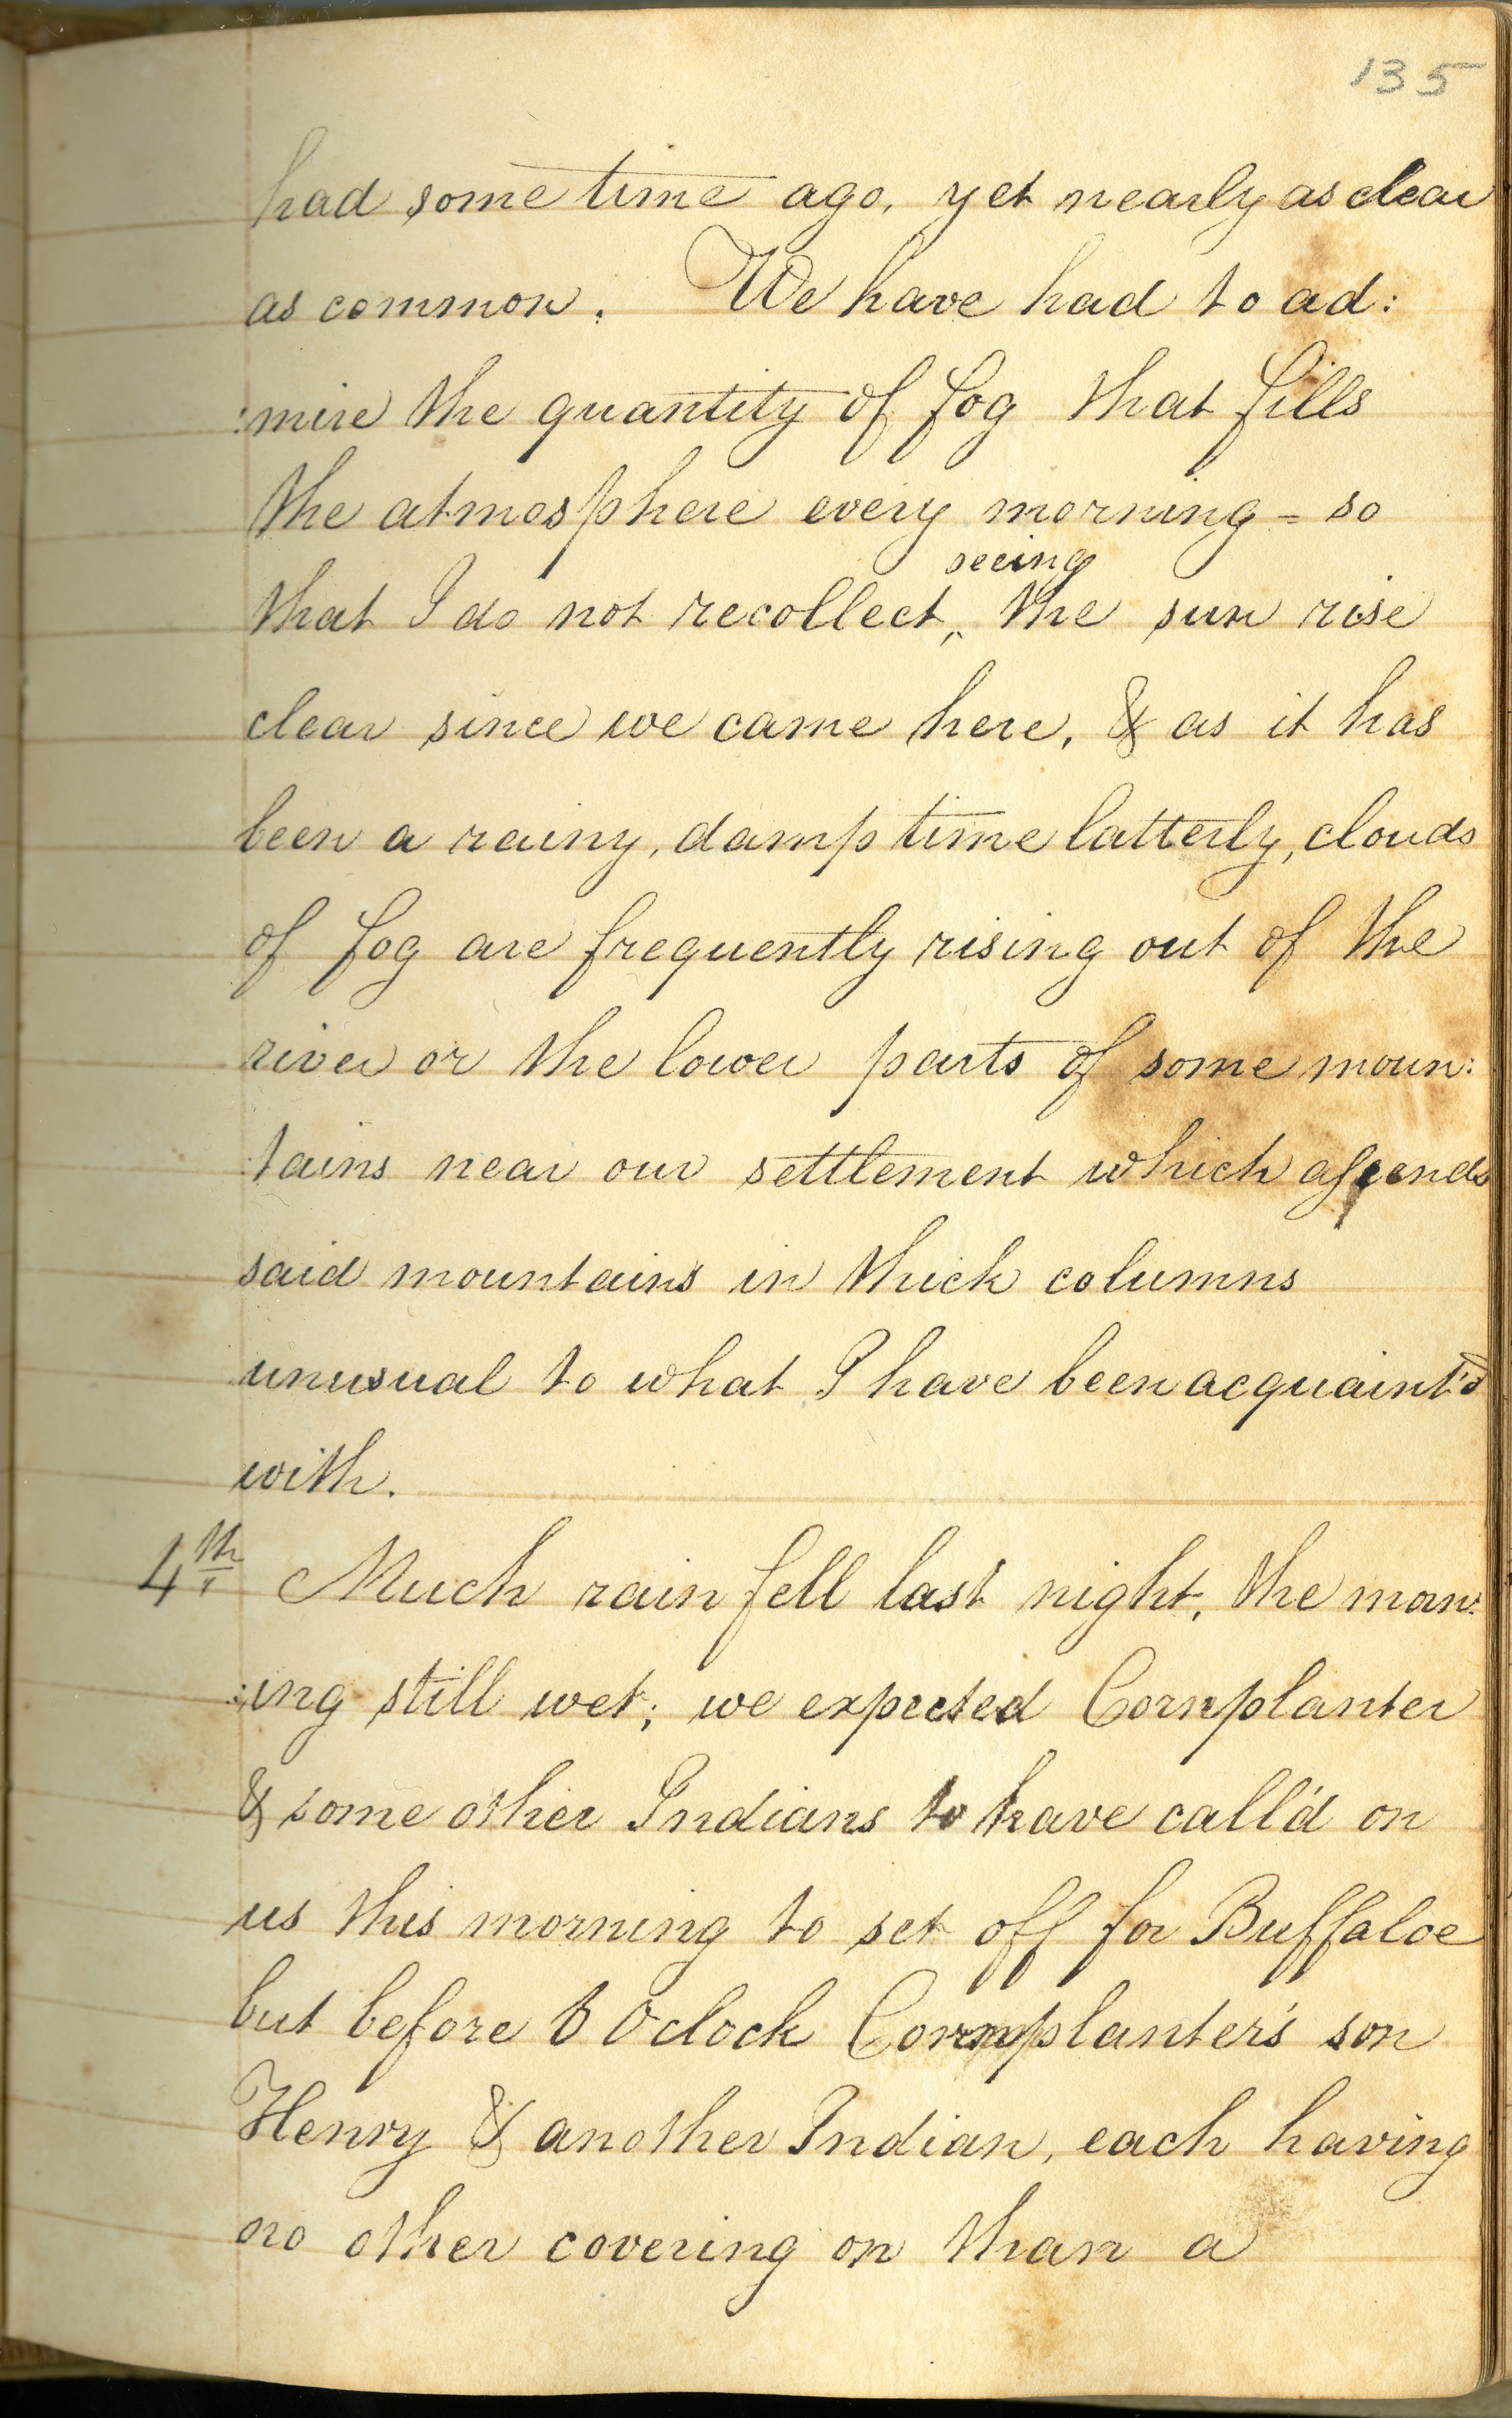 135
had some time ago, yet nearly as clear
as common. We have had to ad:
:mire the quantity of fog that fills
the atmosphere every morning = so
seeing
that I do not recollect, the sun rise
clear since we came here, & as it has
been a rainy, damp time latterly, clouds
of fog are frequently rising out of the
river or the lower parts of some moun:
tains near our settlement which ascends
said mountains in thick columns
unusual to what I have been acquaint'd
with.
4th Much rain fell last night, the morn:
:ing still wet; we expected Cornplanter
& some other Indians to have call'd on
us this morning to set off for Buffaloe
but before 6 Oclock Cornplanter's son
Henry & another Indian, each having
no other covering on than a